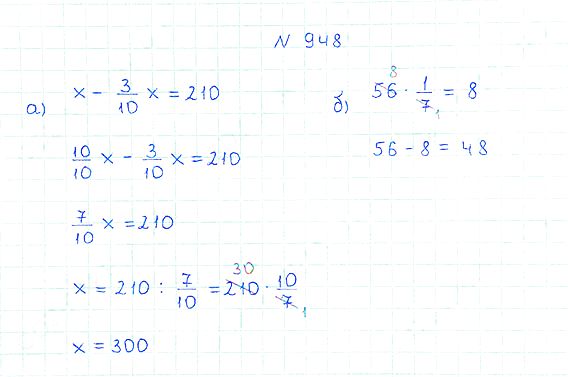 N 948
а) x - 3/10 x = 210
10/10 x - 3/10 x = 210
7/10 x = 210
x = 210 : 7/10 = 210 30 · 10/7 1
x = 300
б) 56 8 · 1/7 1 = 8
56 - 8 = 48